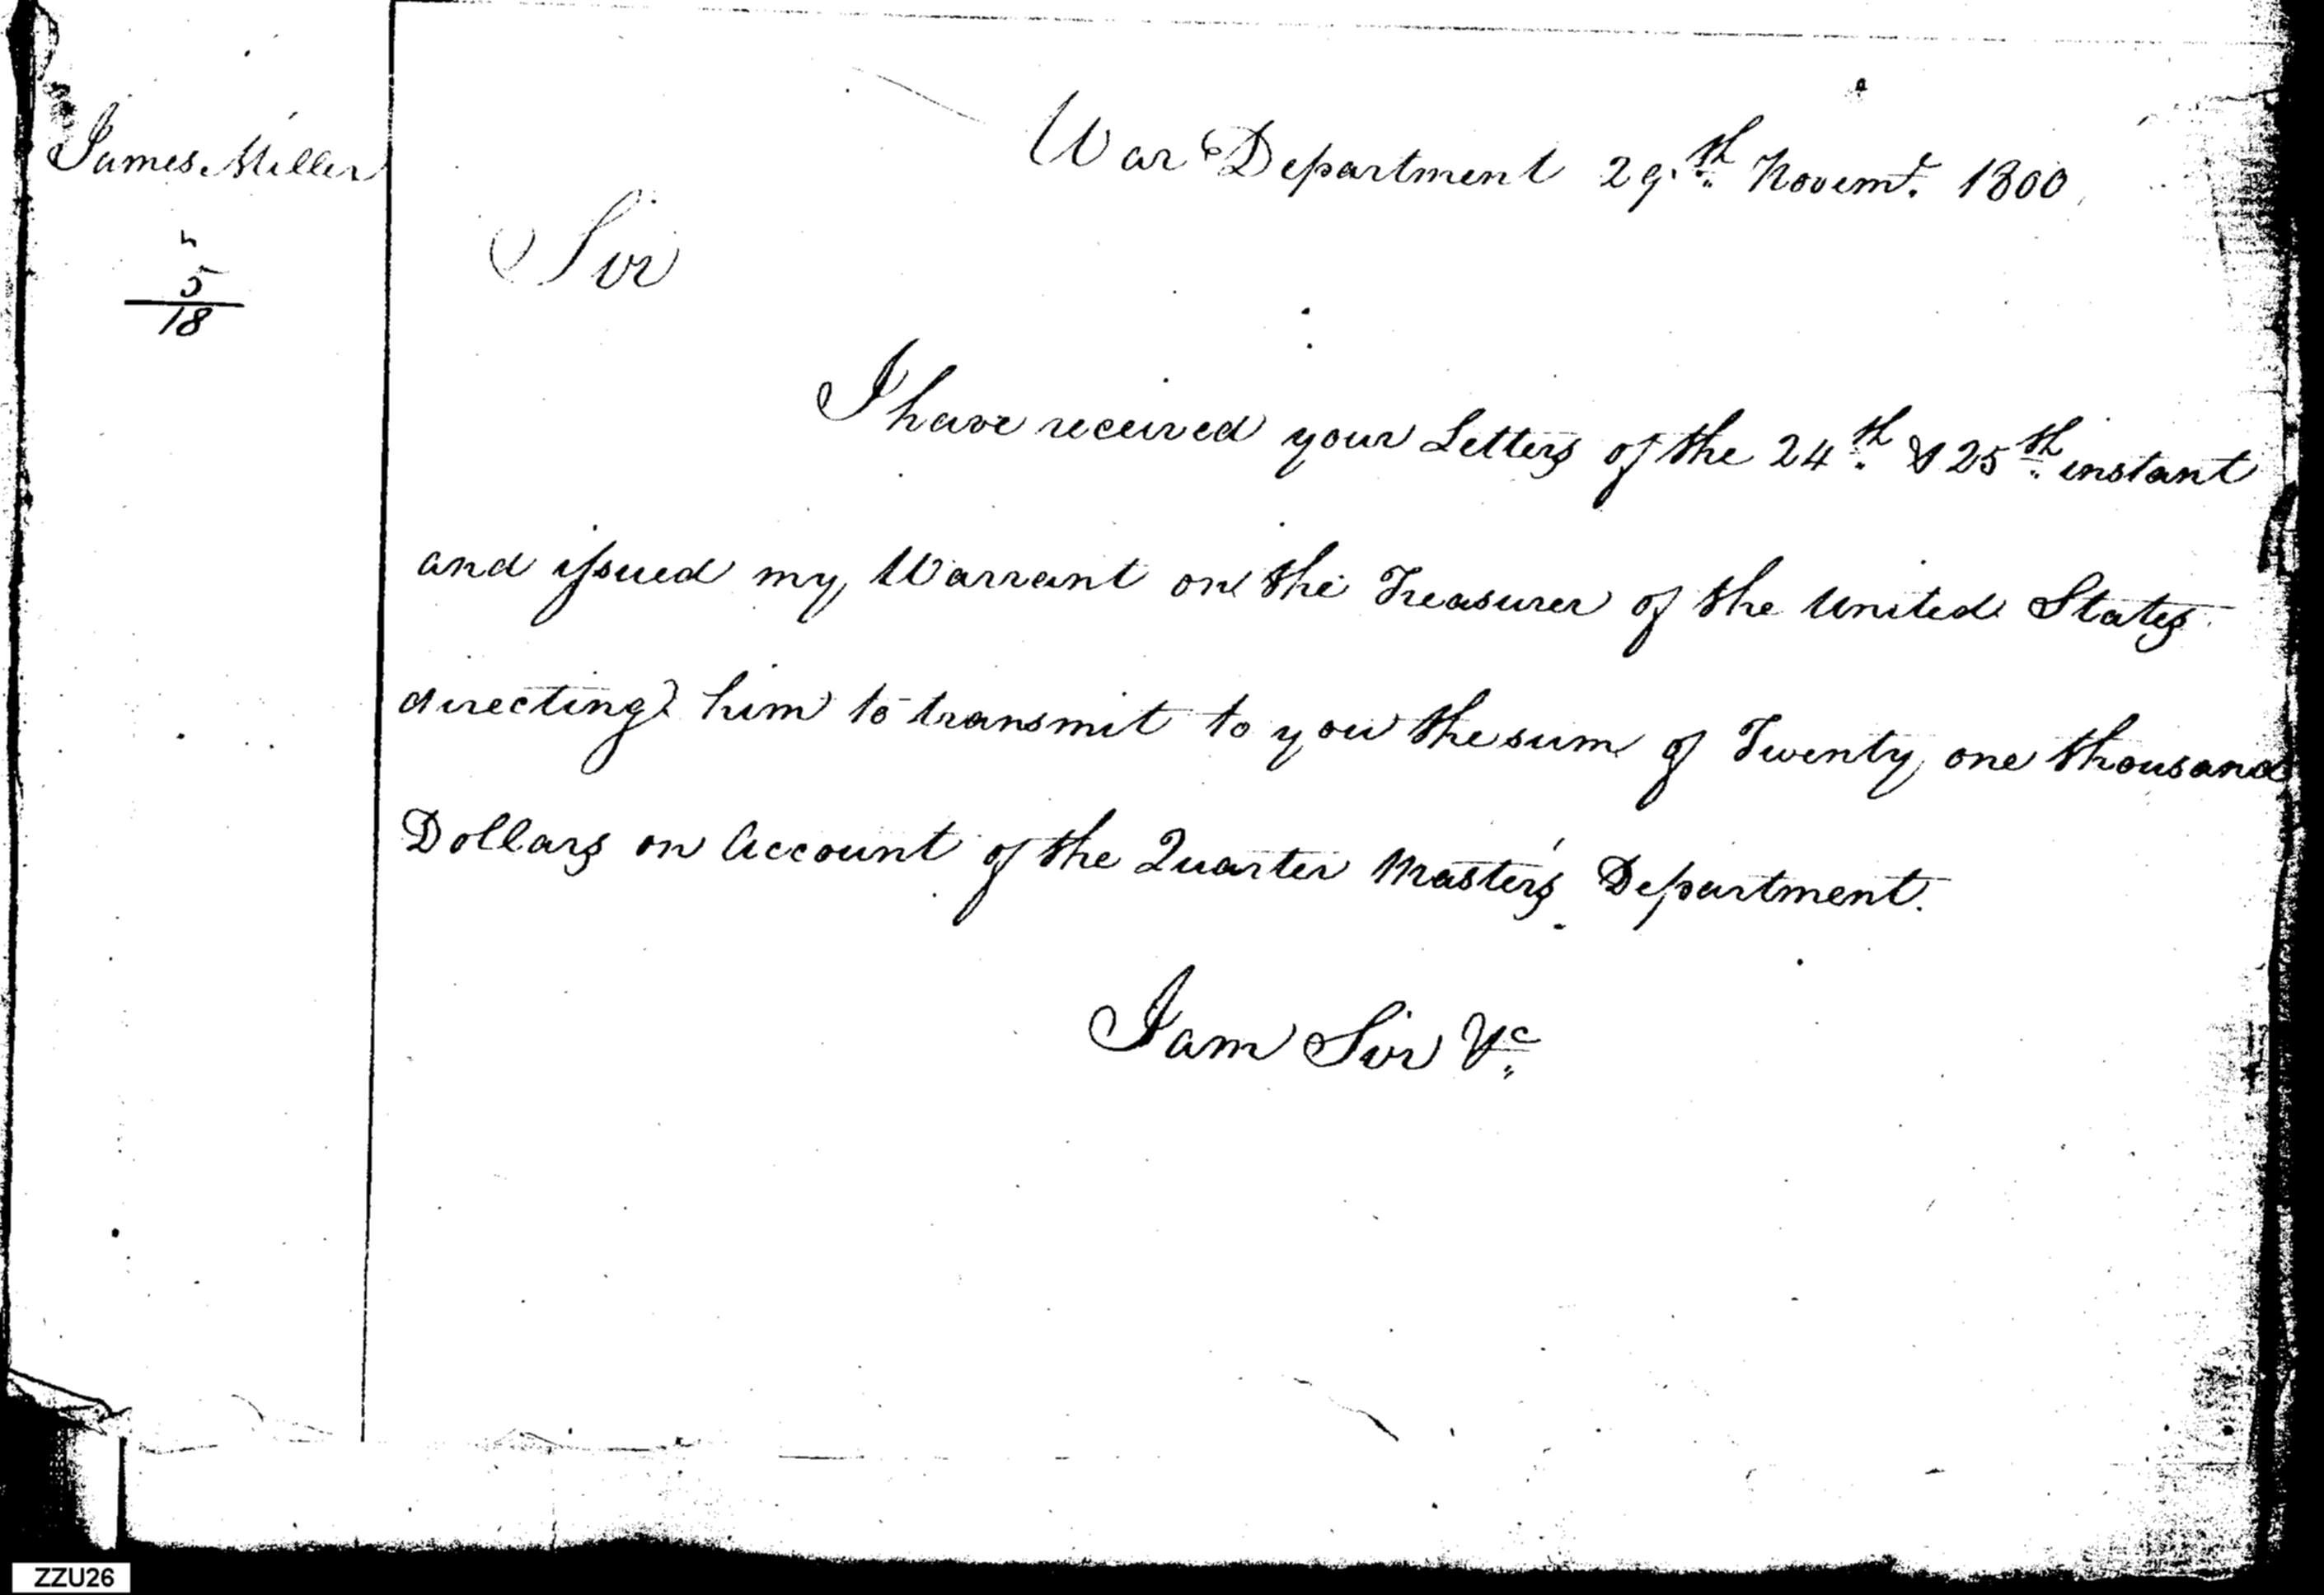 James Miller
5
18
War Department 29th Novemr. 1800
Sir
I have received your Letters of the 24th & 25th instant
and issued my Warrant on the Treasurer of the United States
directing him to transmit to you the sum of Twenty one thousand
Dollars on Account of the Quarter Master's Department.
I am Sir &c
ZZU26